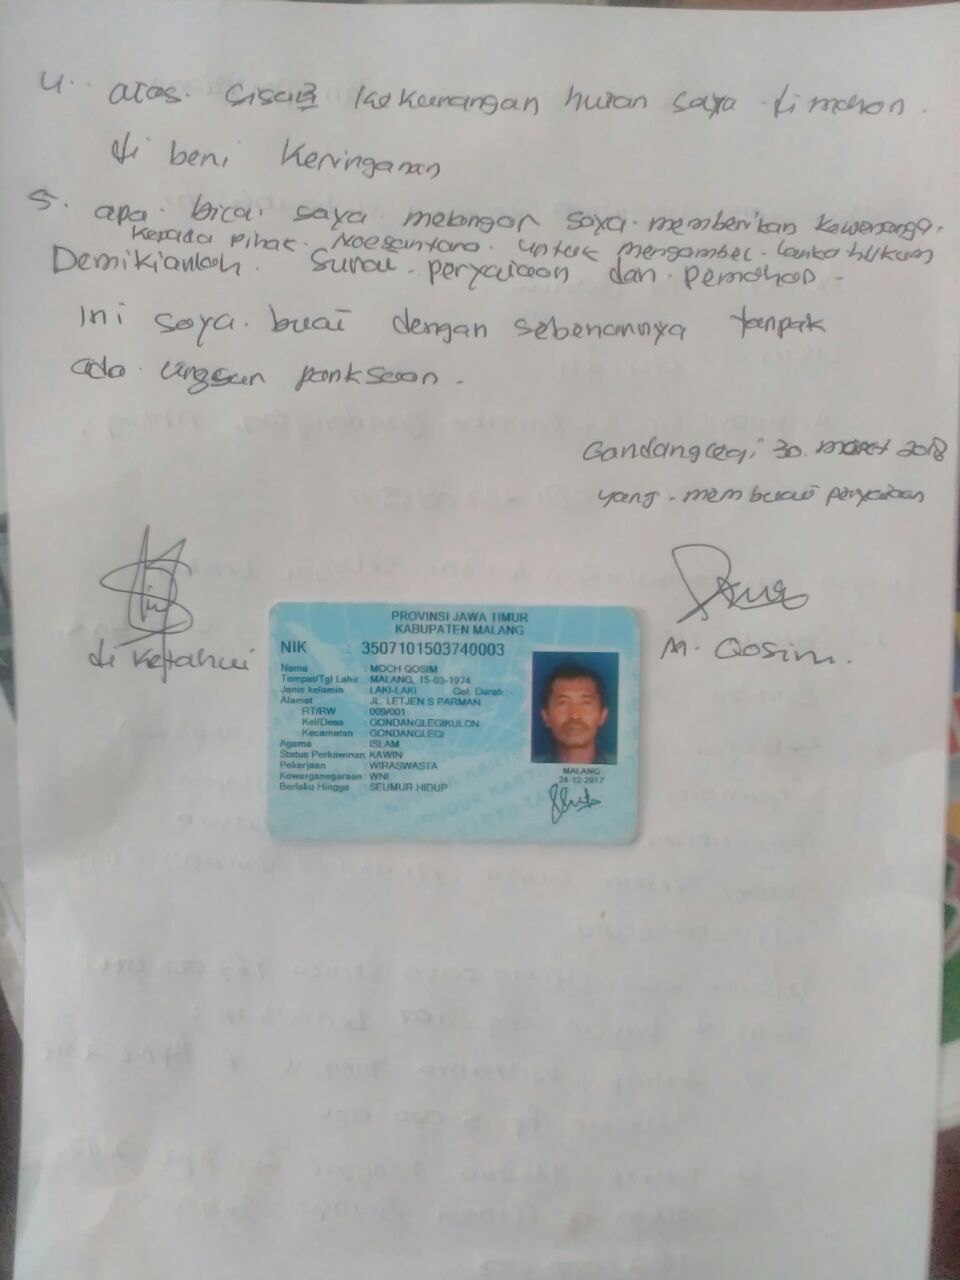 4. atas. sisa kekurangan hutan saya di mohon.
di beri keringanan
5. apa. bicai saya melangar saya memberikan kewenanga.
kepada pihak. Noesantara. untuk mengambel lanka hukum
Demikianlah. Surat peryataan dan pemohon -
ini saya. buat dengan sebenarnya tanpak
ada ungsun panksaan.
Gandanglegi, 30. maret 2018
yang - membuat peryataan
di ketahui
M. Qosim.
PROVINSI JAWA TIMUR
KABUPATEN MALANG
NIK : 3507101503740003
Nama : MOCH QOSIM
Tempat/Tgl Lahir : MALANG, 15-03-1974
Jenis kelamin : LAKI-LAKI Gol. Darah :-
Alamat : JL. LETJEN S PARMAN
RT/RW : 009/001
Kel/Desa : GONDANGLEGIKULON
Kecamatan : GONDANGLEGI
Agama : ISLAM
Status Perkawinan : KAWIN
Pekerjaan : WIRASWASTA
Kewarganegaraan : WNI
Berlaku Hingga : SEUMUR HIDUP
MALANG
24-12-2017